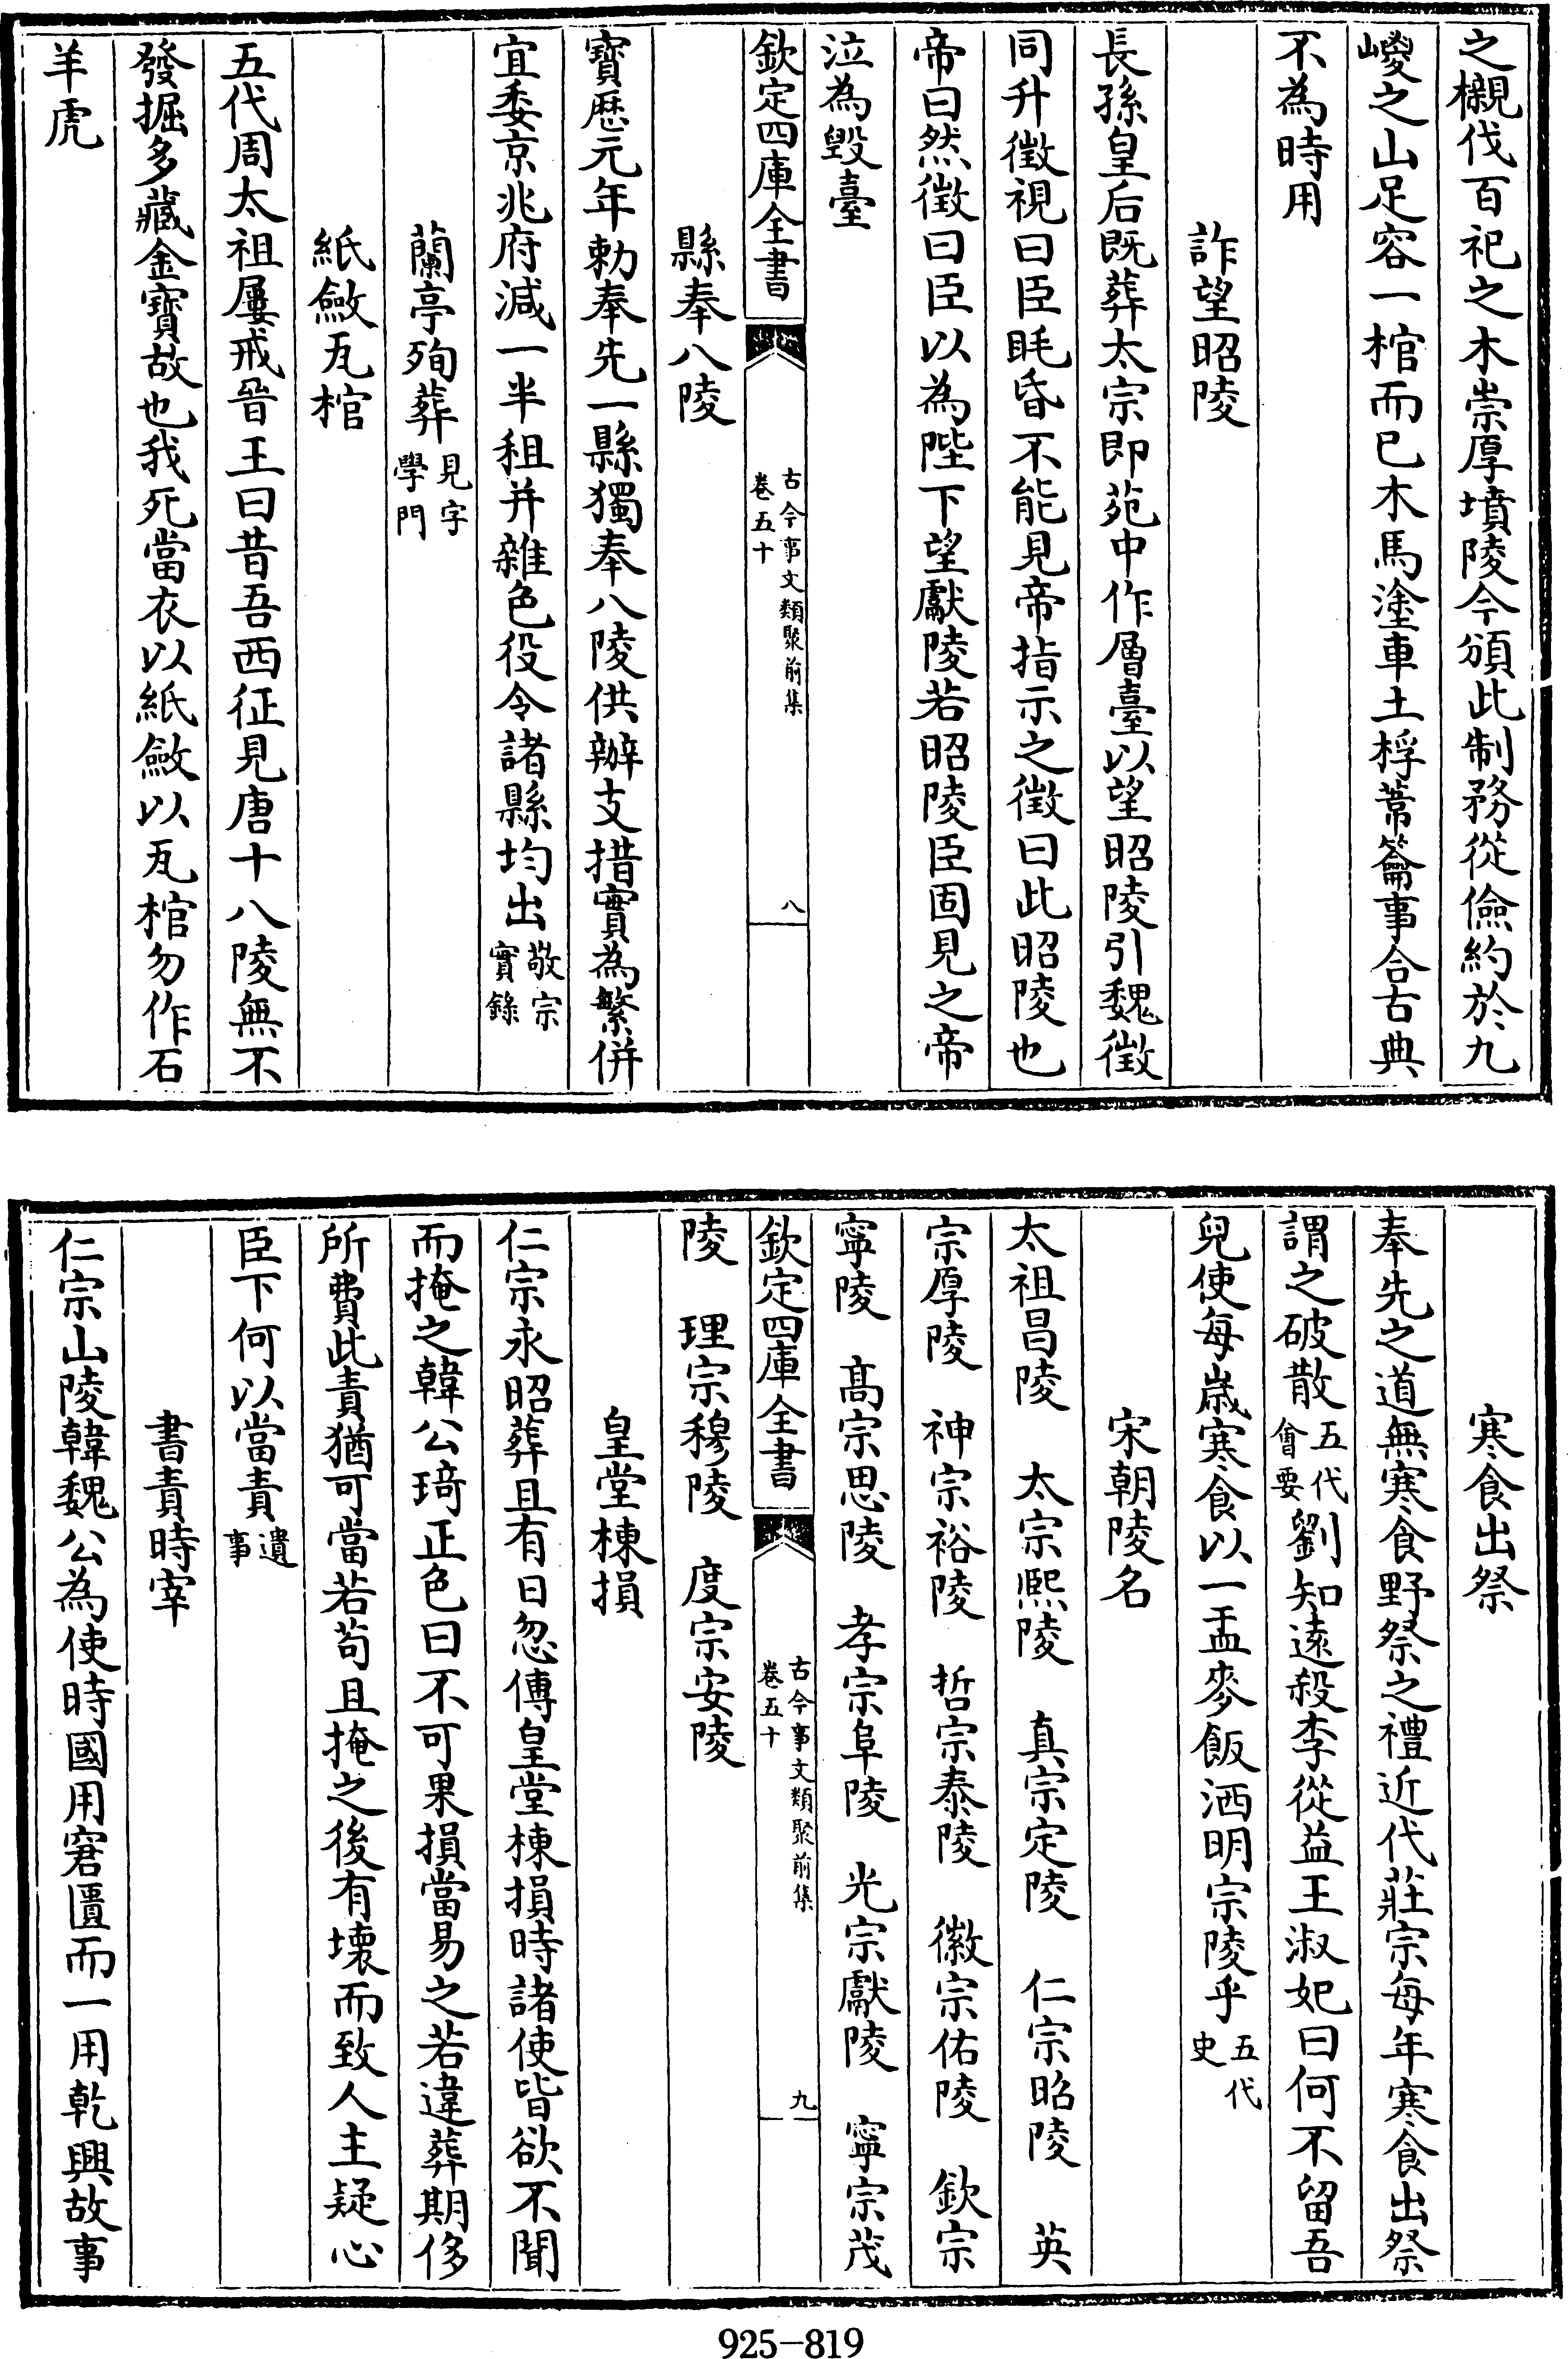 之櫬伐百祀之木崇厚墳陵今頒此制務從儉約於九
嵕之山足容一棺而已木馬塗車土桴葦籥事合古典
不為時用
詐望昭陵
長孫皇后既葬太宗即苑中作層臺以望昭陵引魏徵
同升徵視曰臣眊昏不能見帝指示之徵曰此昭陵也
帝曰然徵曰臣以為陛下望獻陵若昭陵臣固見之帝
泣為毀臺
欽定四庫全書
古今事文類聚前集
卷五十
八
縣奉八陵
寳歷元年勅奉先一縣獨奉八陵供辦支措實為繁併
宜委京兆府減一半租并雜色役令諸縣均出敬宗實錄
蘭亭殉葬見字學門
紙斂瓦棺
五代周太祖屢戒晉王曰昔吾西征見唐十八陵無不
發掘多藏金寳故也我死當衣以紙斂以瓦棺勿作石
羊虎
寒食出祭
奉先之道無寒食野祭之禮近代莊宗每年寒食出祭
謂之破散五代會要劉知遠殺李從益王淑妃曰何不留吾
兒使每歲寒食以一盂麥飯洒明宗陵乎五代史
宋朝陵名
太祖昌陵 太宗熙陵 真宗定陵 仁宗昭陵 英
宗厚陵 神宗裕陵 哲宗泰陵 徽宗佑陵 欽宗
寧陵 高宗思陵 孝宗阜陵 光宗獻陵 寧宗茂
欽定四庫全書
古今事文類聚前集
卷五十
九
陵 理宗穆陵 度宗安陵
皇堂棟損
仁宗永昭葬且有日忽傳皇堂棟損時諸使皆欲不聞
而掩之韓公琦正色曰不可果損當易之若違葬期侈
所費此責猶可當若苟且掩之後有壊而致人主疑心
臣下何以當責遺事
書責時宰
仁宗山陵韓魏公為使時國用窘匱而一用乾興故事
925-819